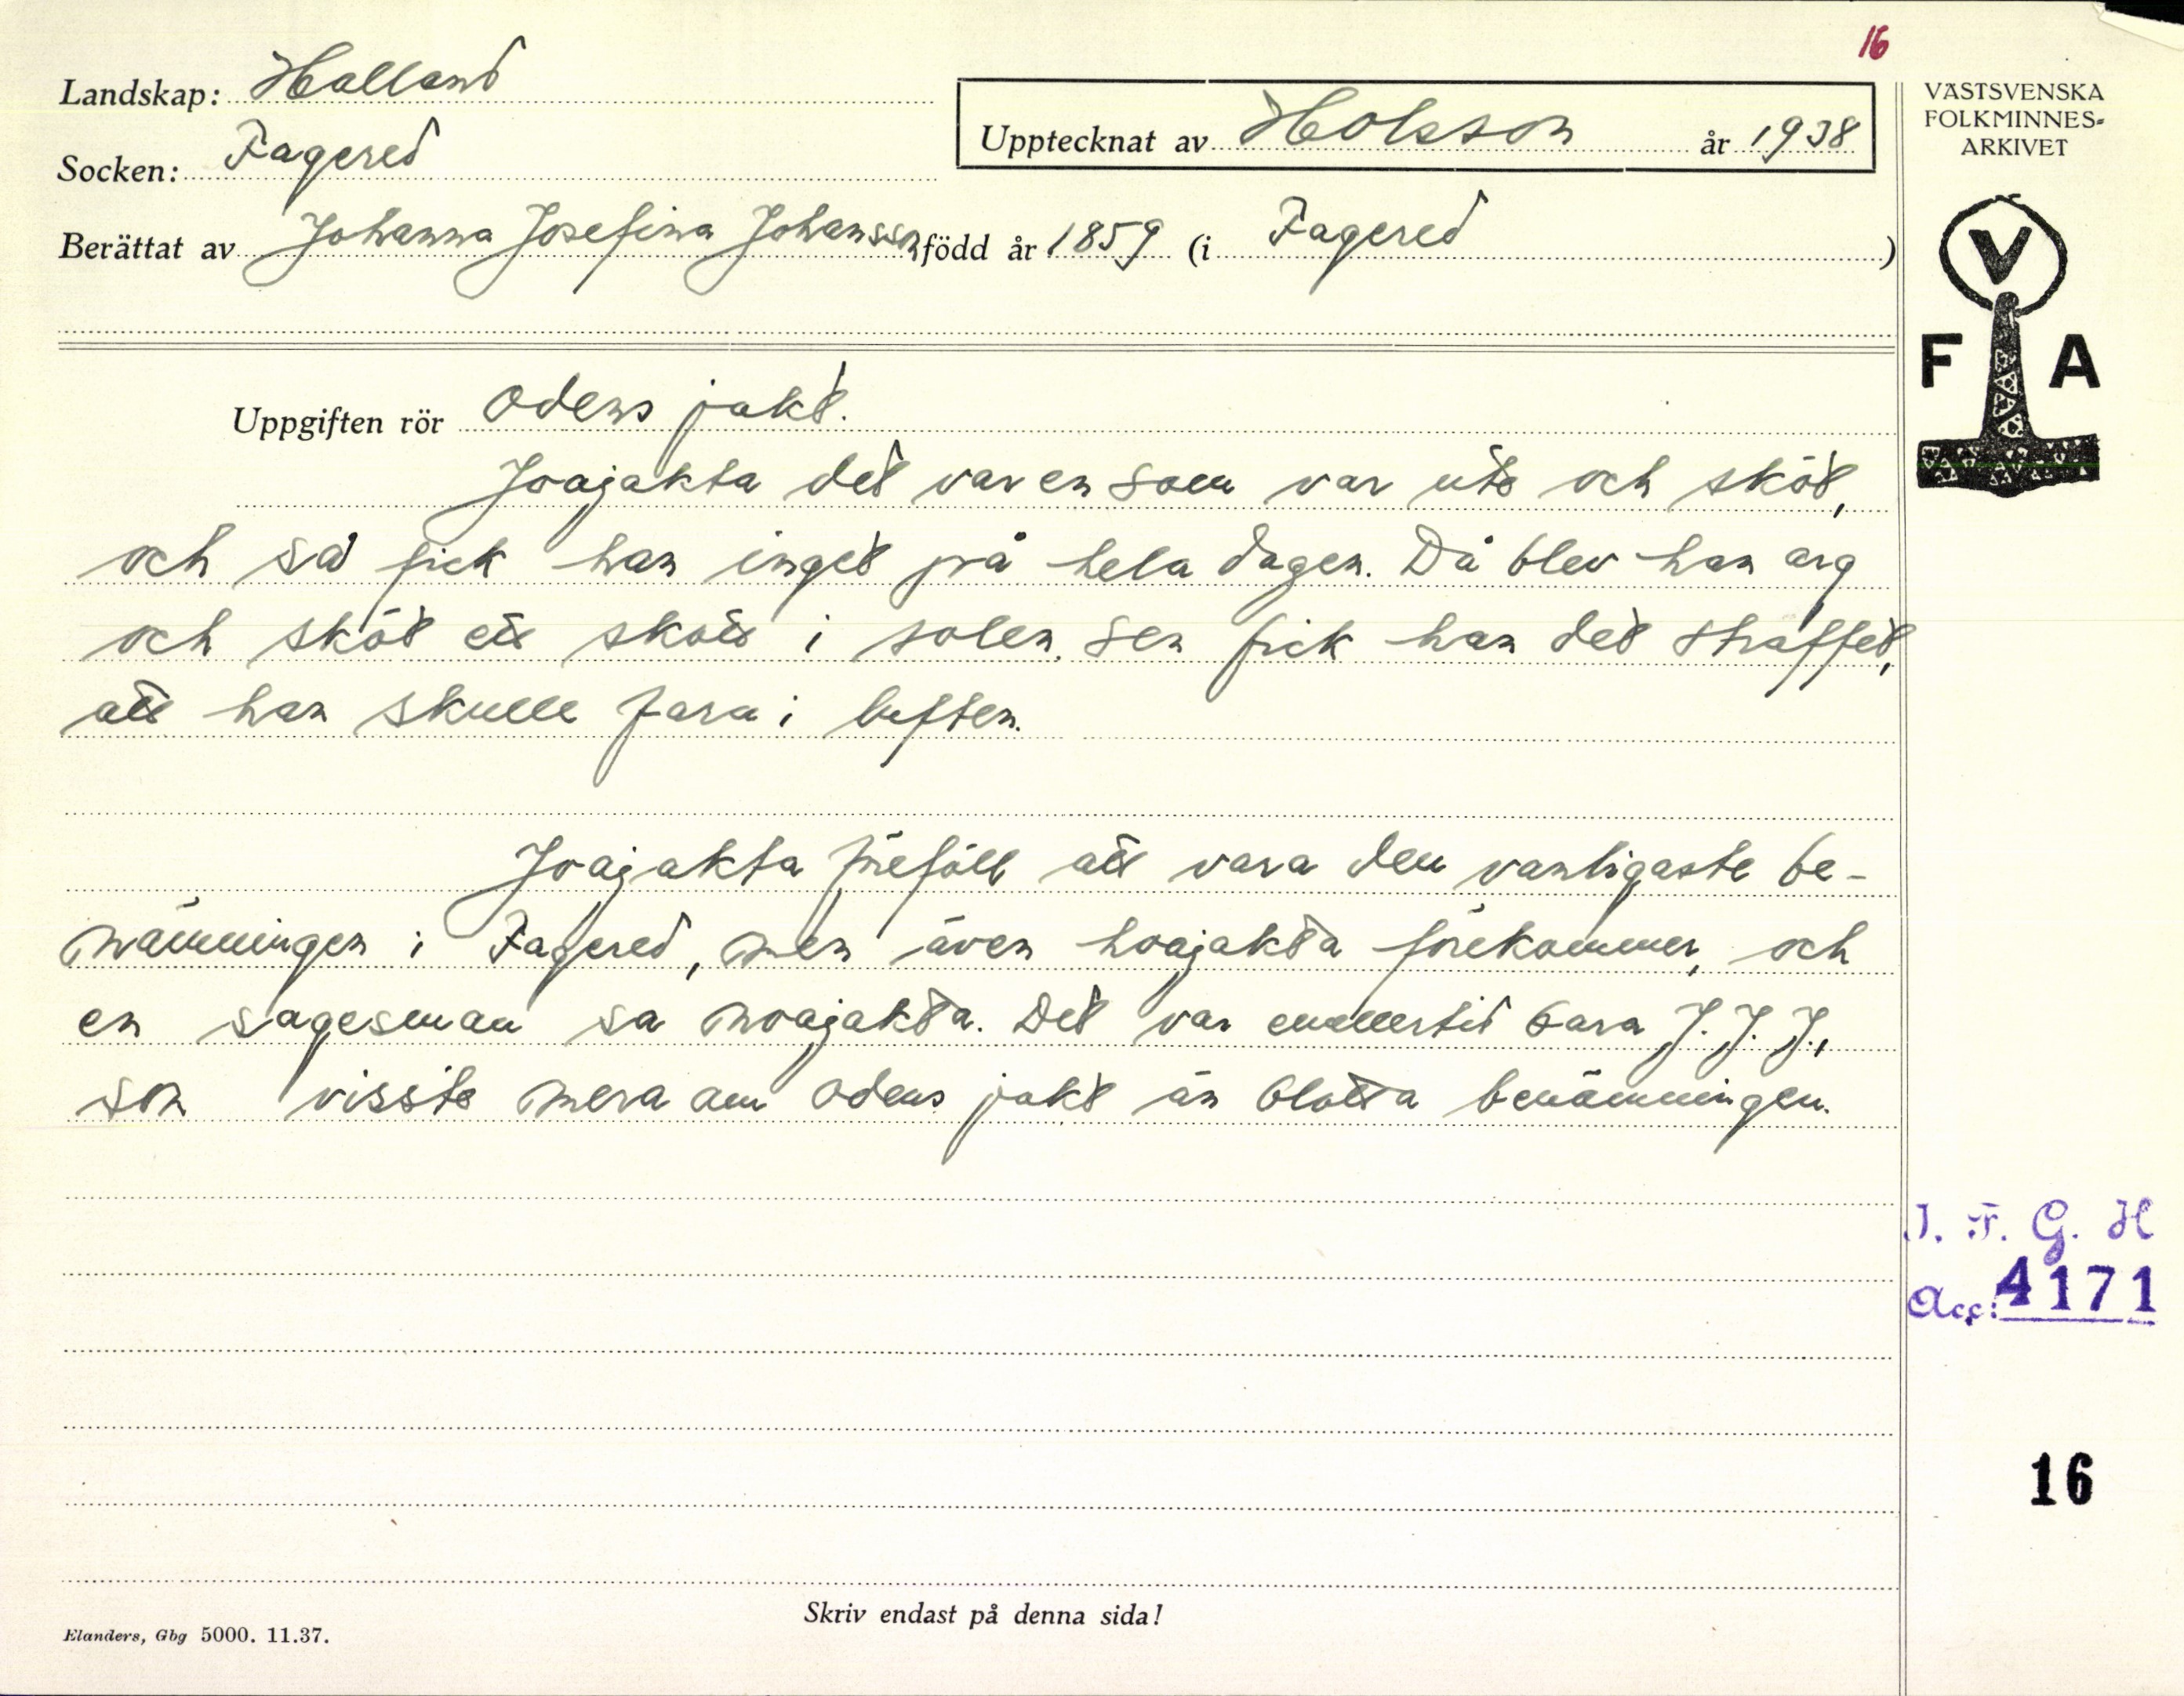 16
Landskap: Halland
Socken: Fagered
Upptecknat av HOlsson år 1938
Berättat av Johanna Josefina Johansson född år 1859 (i Fagered)
VÄSTSVENSKA
FOLKMINNES-
ARKIVET
V
F A
Uppgiften rör Odens jakt.
Joajakta det var en som var ute och sköt,
och så fick han inget på hela dagen. Då blev han arg
och sköt ett skott i solen. Sen fick han det straffet,
att han skulle fara i luften.
Joajakta föreföll att vara den vanligaste be-
nämningen i Fagered, men även hoajakta förekommer, och
en sagesman sa noajakta. Det var emellertid bara J. J. J.,
som visste mera om Odens jakt än blotta benämningen.
I. F. G. H
Acc: 4171
16
Skriv endast på denna sida!
Elanders, Gbg 5000. 11.37.